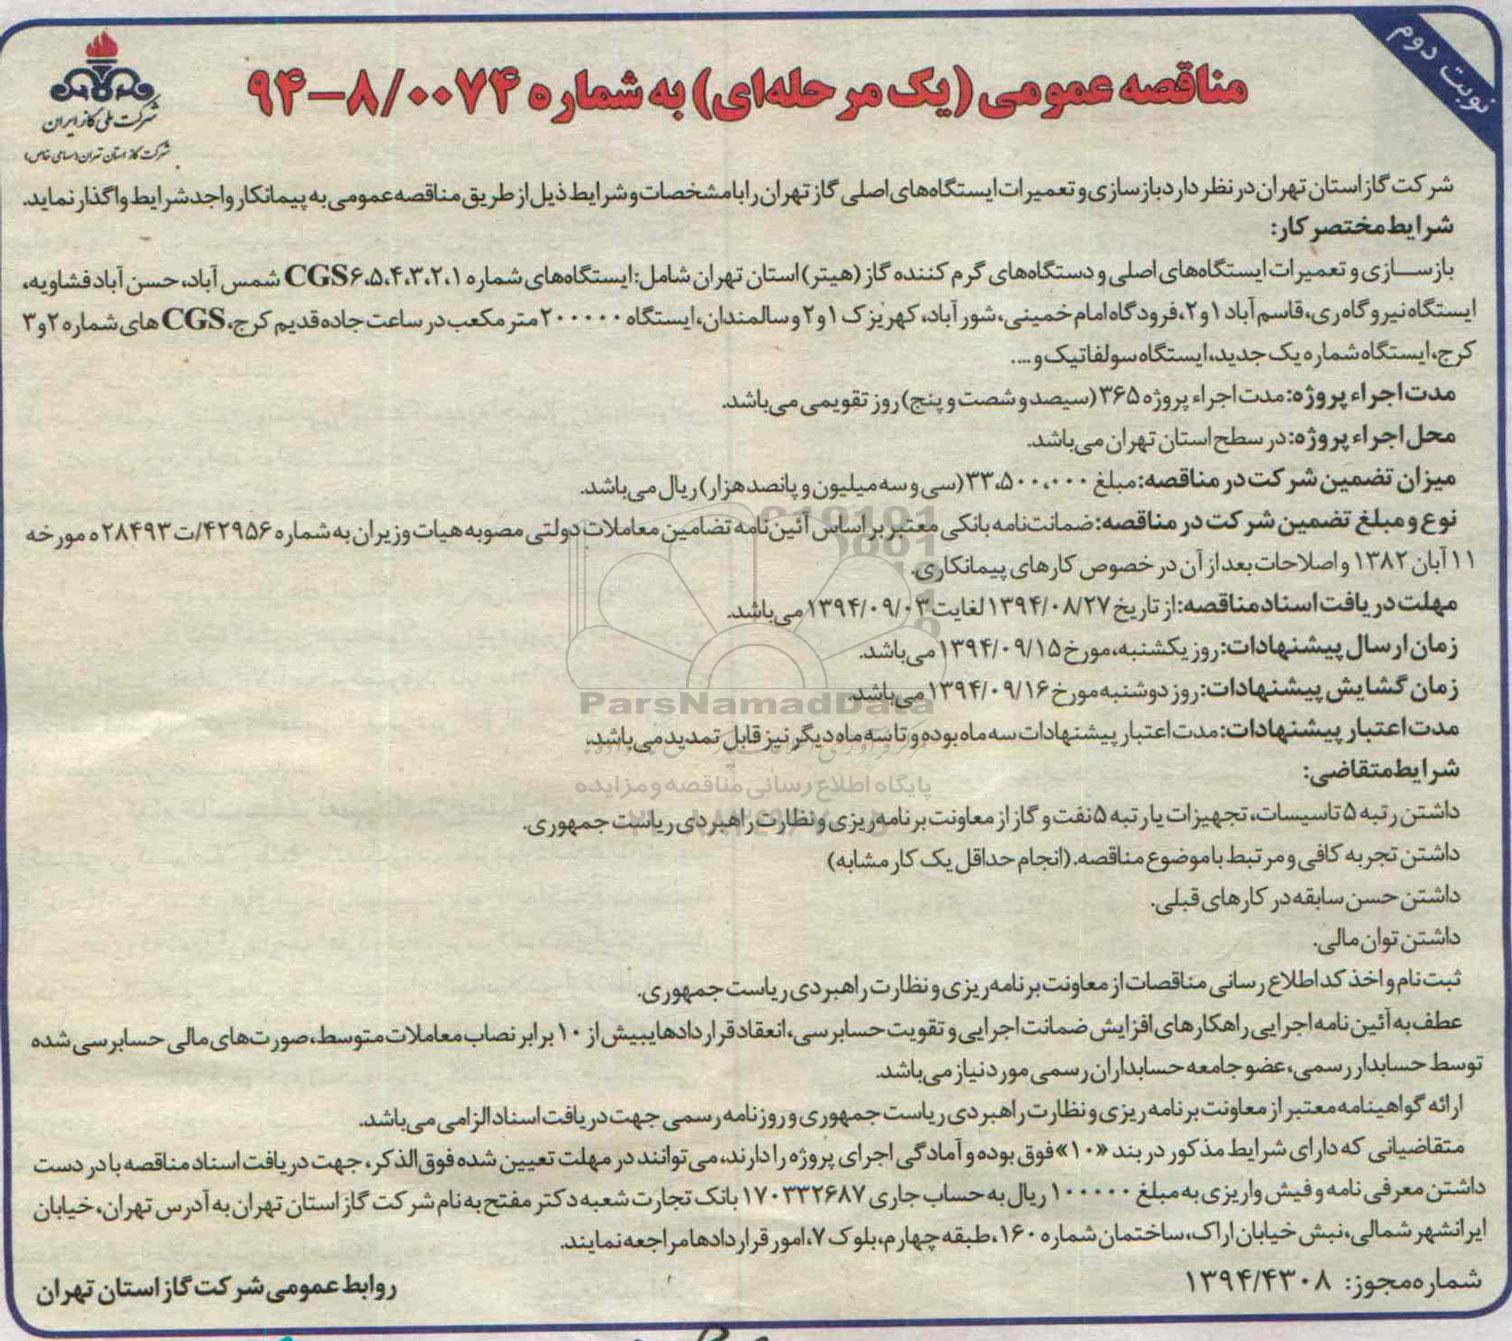 نوبت دوم
مناقصه عمومی (یک مرحله‌ای) به شماره ۰۰۷۴/۸-۹۴
شرکت ملی گاز ایران
شرکت گاز استان تهران (سهامی خاص)
شرکت گاز استان تهران در نظر دارد بازسازی و تعمیرات ایستگاه‌های اصلی گاز تهران را با مشخصات و شرایط ذیل از طریق مناقصه عمومی به پیمانکار واجد شرایط واگذار نماید.
شرایط مختصر کار:
بازسازی و تعمیرات ایستگاه‌های اصلی و دستگاه‌های گرم کننده گاز (هیتر) استان تهران شامل: ایستگاه‌های شماره ۱،۲،۳،۴،۵،۶ CGS شمس آباد، حسن آباد فشاویه،
ایستگاه نیروگاه ری، قاسم آباد ۱و۲، فرودگاه امام خمینی، شورآباد، کهریزک ۱و۲ و سالمندان، ایستگاه ۲۰۰۰۰۰ متر مکعب در ساعت جاده قدیم کرج، CGS های شماره ۲و۳
کرج، ایستگاه شماره یک جدید، ایستگاه سولفاتیک و ....
مدت اجراء پروژه: مدت اجراء پروژه ۳۶۵ (سیصد و شصت و پنج) روز تقویمی می‌باشد.
محل اجراء پروژه: در سطح استان تهران می‌باشد.
میزان تضمین شرکت در مناقصه: مبلغ ۳۳،۵۰۰،۰۰۰ (سی و سه میلیون و پانصد هزار) ریال می‌باشد.
نوع و مبلغ تضمین شرکت در مناقصه: ضمانت‌نامه بانکی معتبر بر اساس آئین‌نامه تضامین معاملات دولتی مصوبه هیات وزیران به شماره ۴۲۹۵۶/ت۲۸۴۹۳ ه مورخه
۱۱ آبان ۱۳۸۲ و اصلاحات بعد از آن در خصوص کارهای پیمانکاری.
مهلت دریافت اسناد مناقصه: از تاریخ ۱۳۹۴/۰۸/۲۷ لغایت ۱۳۹۴/۰۹/۰۳ می‌باشد.
زمان ارسال پیشنهادات: روز یکشنبه، مورخ ۱۳۹۴/۰۹/۱۵ می‌باشد.
زمان گشایش پیشنهادات: روز دوشنبه مورخ ۱۳۹۴/۰۹/۱۶ می‌باشد.
ParsNamadData
مدت اعتبار پیشنهادات: مدت اعتبار پیشنهادات سه ماه بوده و تا سه ماه دیگر نیز قابل تمدید می‌باشد.
شرایط متقاضی:
پایگاه اطلاع رسانی مناقصه و مزایده
داشتن رتبه ۵ تاسیسات، تجهیزات یا رتبه ۵ نفت و گاز از معاونت برنامه‌ریزی و نظارت راهبردی ریاست جمهوری.
داشتن تجربه کافی و مرتبط با موضوع مناقصه. (انجام حداقل یک کار مشابه)
داشتن حسن سابقه در کارهای قبلی.
داشتن توان مالی.
ثبت نام و اخذ کد اطلاع رسانی مناقصات از معاونت برنامه‌ریزی و نظارت راهبردی ریاست جمهوری.
عطف به آئین نامه اجرایی راهکارهای افزایش ضمانت اجرایی و تقویت حسابرسی، انعقاد قراردادهایبیش از ۱۰ برابر نصاب معاملات متوسط، صورت‌های مالی حسابرسی شده
توسط حسابدار رسمی، عضو جامعه حسابداران رسمی مورد نیاز می‌باشد.
ارائه گواهینامه معتبر از معاونت برنامه ریزی و نظارت راهبردی ریاست جمهوری و روزنامه رسمی جهت دریافت اسناد الزامی می‌باشد.
متقاضیانی که دارای شرایط مذکور در بند «۱۰» فوق بوده و آمادگی اجرای پروژه را دارند، می‌توانند در مهلت تعیین شده فوق‌الذکر، جهت دریافت اسناد مناقصه با در دست
داشتن معرفی نامه و فیش واریزی به مبلغ ۱۰۰۰۰۰ ریال به حساب جاری ۱۷۰۳۳۲۶۸۷ بانک تجارت شعبه دکتر مفتح به نام شرکت گاز استان تهران به آدرس تهران، خیابان
ایرانشهر شمالی، نبش خیابان اراک، ساختمان شماره ۱۶۰، طبقه چهارم، بلوک ۷، امور قراردادها مراجعه نمایند.
شماره مجوز: ۱۳۹۴/۴۳۰۸
روابط عمومی شرکت گاز استان تهران